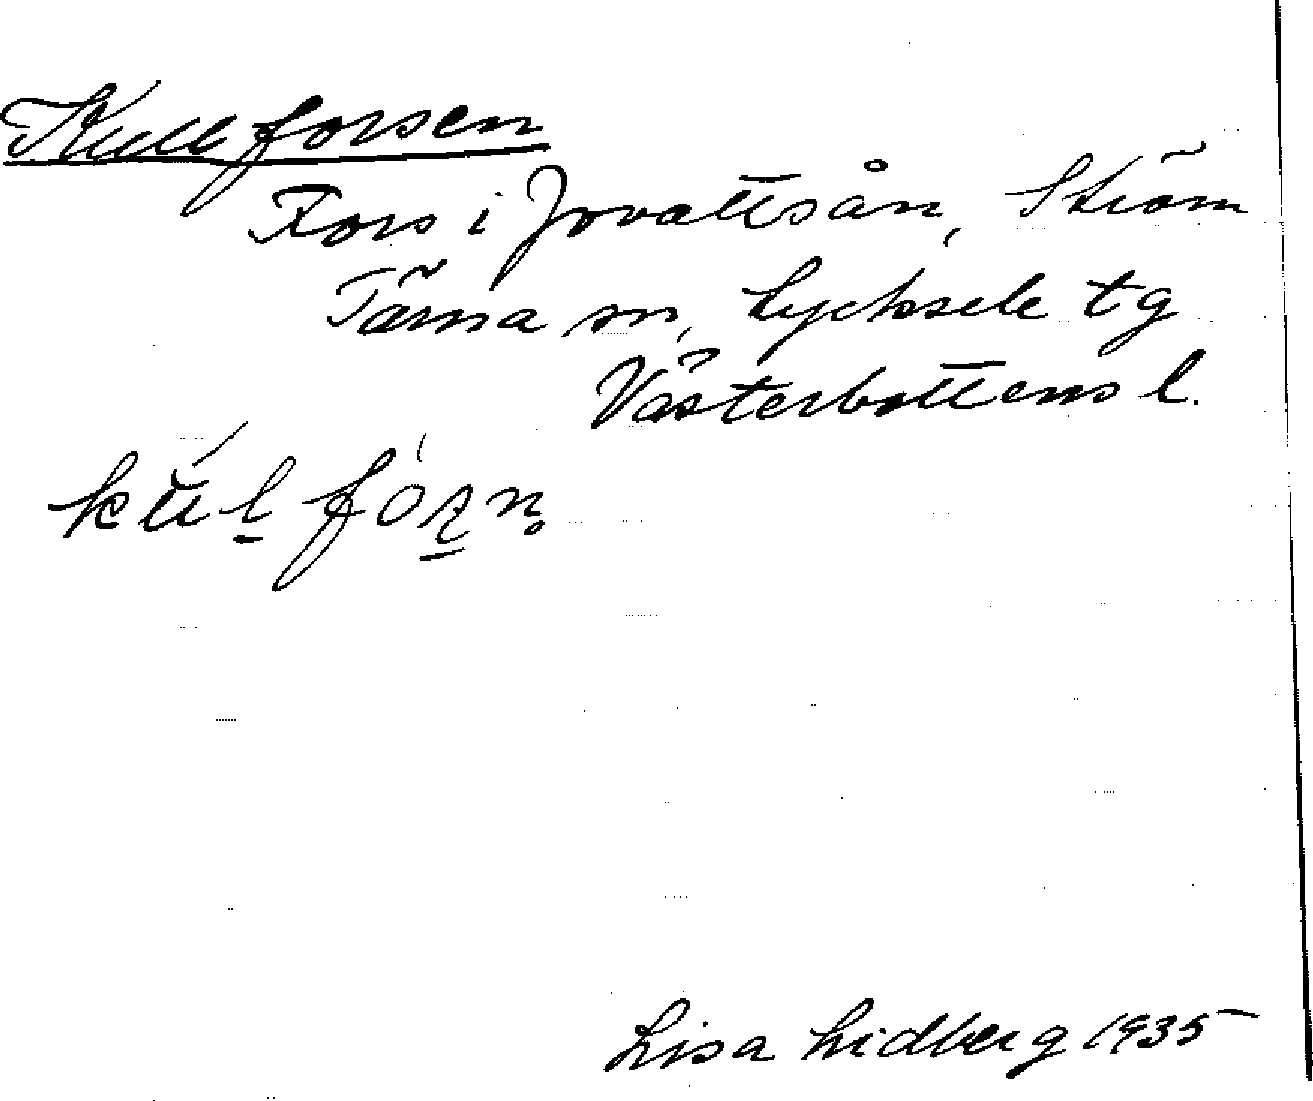 Kullforsen
Fors i Jovattsån, Ström
Tärna sn, Lycksele tg
Västerbottens l.
kul fórn
Lisa Lidberg 1935